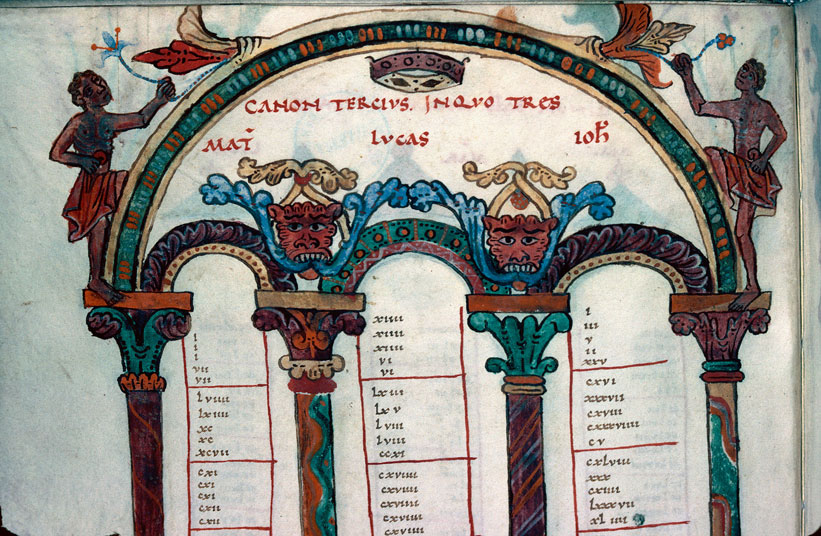 CANON TERCIUS. INQUO TRES
MAT̄ LUCAS IOH̄
i
i
i
vii
vii
lviiii
lxiiii
xc
xc
xcvii
cxi
cxi
cxi
cxii
cxii
xiiii
xiiii
xiiii
vi
vi
lxiii
lxv
lviii
lviii
ccxi
cxviiii
cxviiii
cxviiii
cxviiii
cxviiii
i
iii
v
ii
xxv
cxvi
xxxvii
cxviii
cxxxviiii
cv
cxlviii
xxx
cxiiii
lxxxvii
xliiii